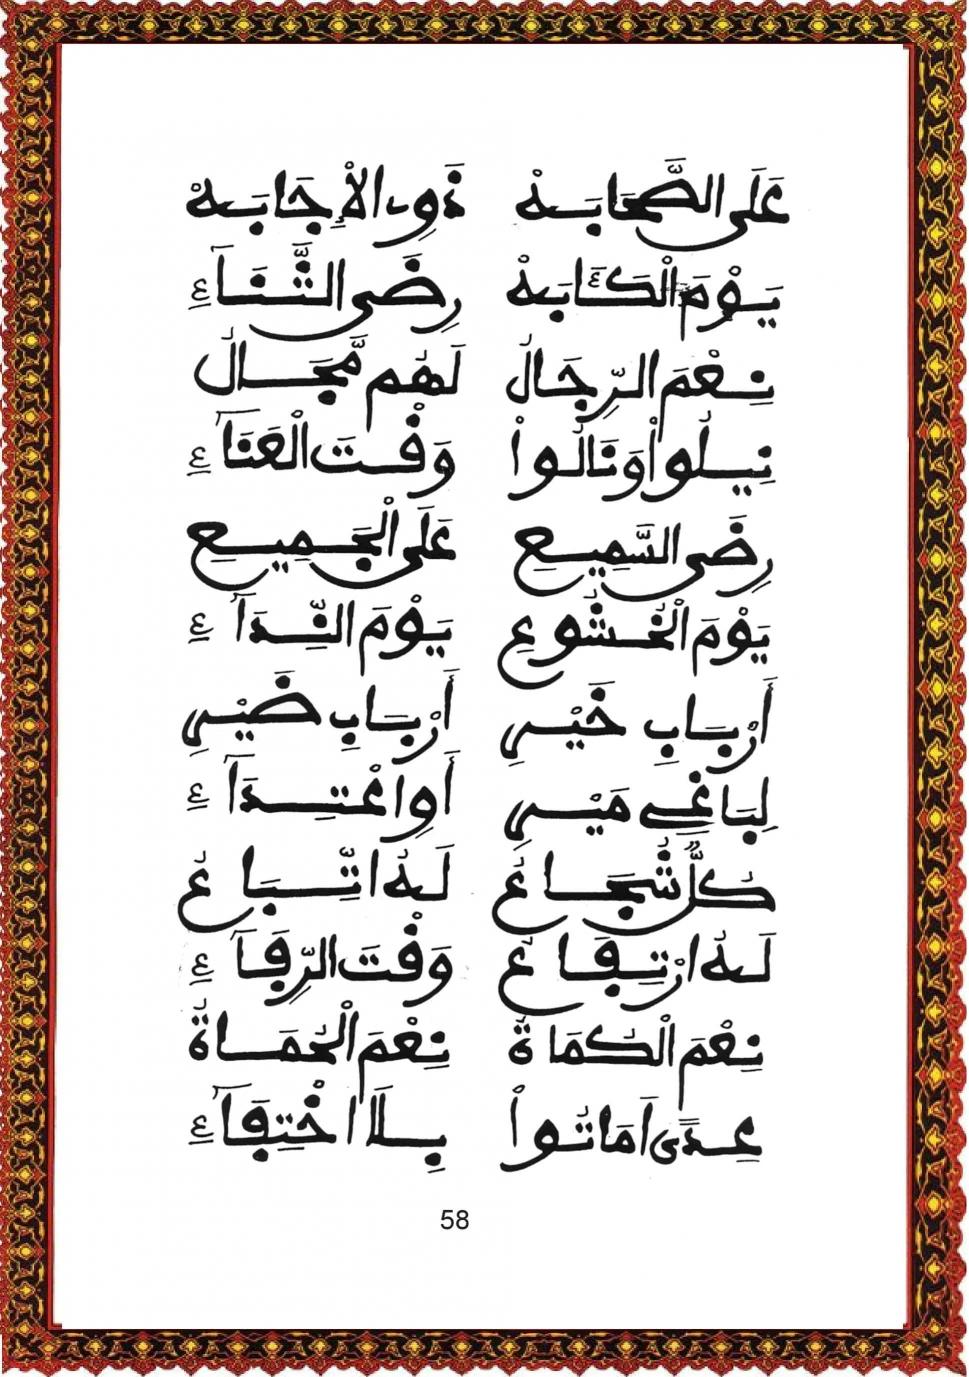 عَلَى الصَّحَابَهْ ذَوِى الْإِجَابَهْ
يَوْمَ الْكَئَابَهْ رِضَى الثَّنَآءِ
نِعْمَ الرِّجَالُ لَهُم مَّجَالُ
نِيلُواْ وَنَالُواْ وَقْتَ الْعَنَآءِ
رِضَى السَّمِيعِ عَلَى الْجَمِيعِ
يَوْمَ الْخُشُوعِ يَوْمَ النِّدَآءِ
أَرْبَابِ خَيْرِ أَرْبَابِ ضَيْرِ
لِبَاغِي مَيْرِ أَوِ اعْتِدَآءِ
كُلُّ شُجَاعُ لَهُ اتِّبَاعُ
لَهُ ارْتِفَاعُ وَقْتَ الرِّفَآءِ
نِعْمَ الْكُمَاةُ نِعْمَ الْحُمَاةُ
عِدًى أَمَاتُواْ بِلَا اخْتِفَآءِ
58